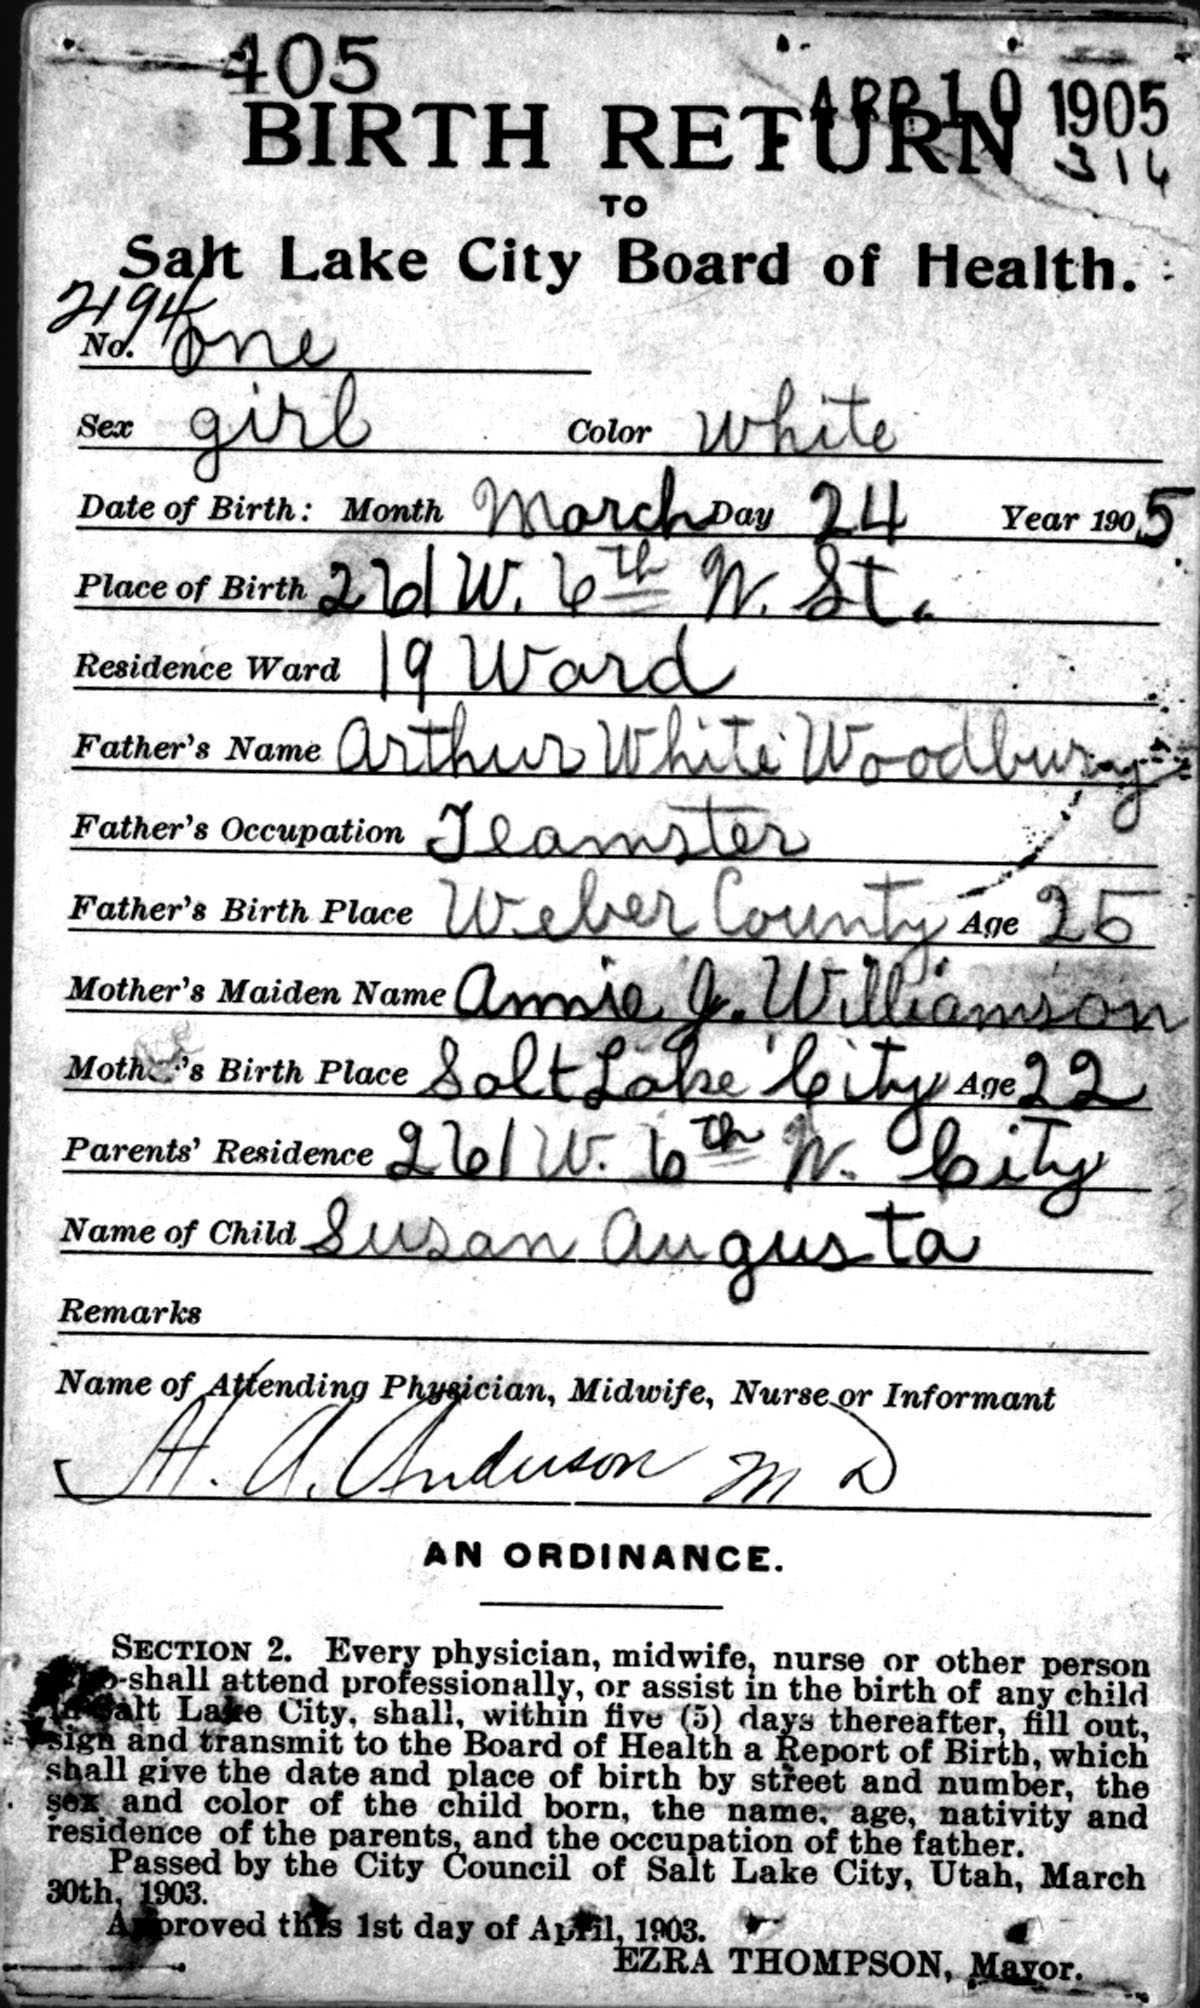 405
APR 10 1905
BIRTH RETURN
316
TO
Salt Lake City Board of Health.
2194
No. One
Sex girl Color White
Date of Birth: Month March Day 24 Year 1905
Place of Birth 261 W. 6th N. St.
Residence Ward 19 Ward
Father's Name Arthur White Woodbury
Father's Occupation Teamster
Father's Birth Place Weber County Age 25
Mother's Maiden Name Annie J. Williamson
Mother's Birth Place Salt Lake City Age 22
Parents' Residence 261 W. 6th N. City
Name of Child Susan Augusta
Remarks
Name of Attending Physician, Midwife, Nurse or Informant
H. A. Anderson M D
AN ORDINANCE.
SECTION 2. Every physician, midwife, nurse or other person
who shall attend professionally, or assist in the birth of any child
in Salt Lake City, shall, within five (5) days thereafter, fill out,
sign and transmit to the Board of Health a Report of Birth, which
shall give the date and place of birth by street and number, the
sex and color of the child born, the name, age, nativity and
residence of the parents, and the occupation of the father.
Passed by the City Council of Salt Lake City, Utah, March
30th, 1903.
Approved this 1st day of April, 1903.
EZRA THOMPSON, Mayor.